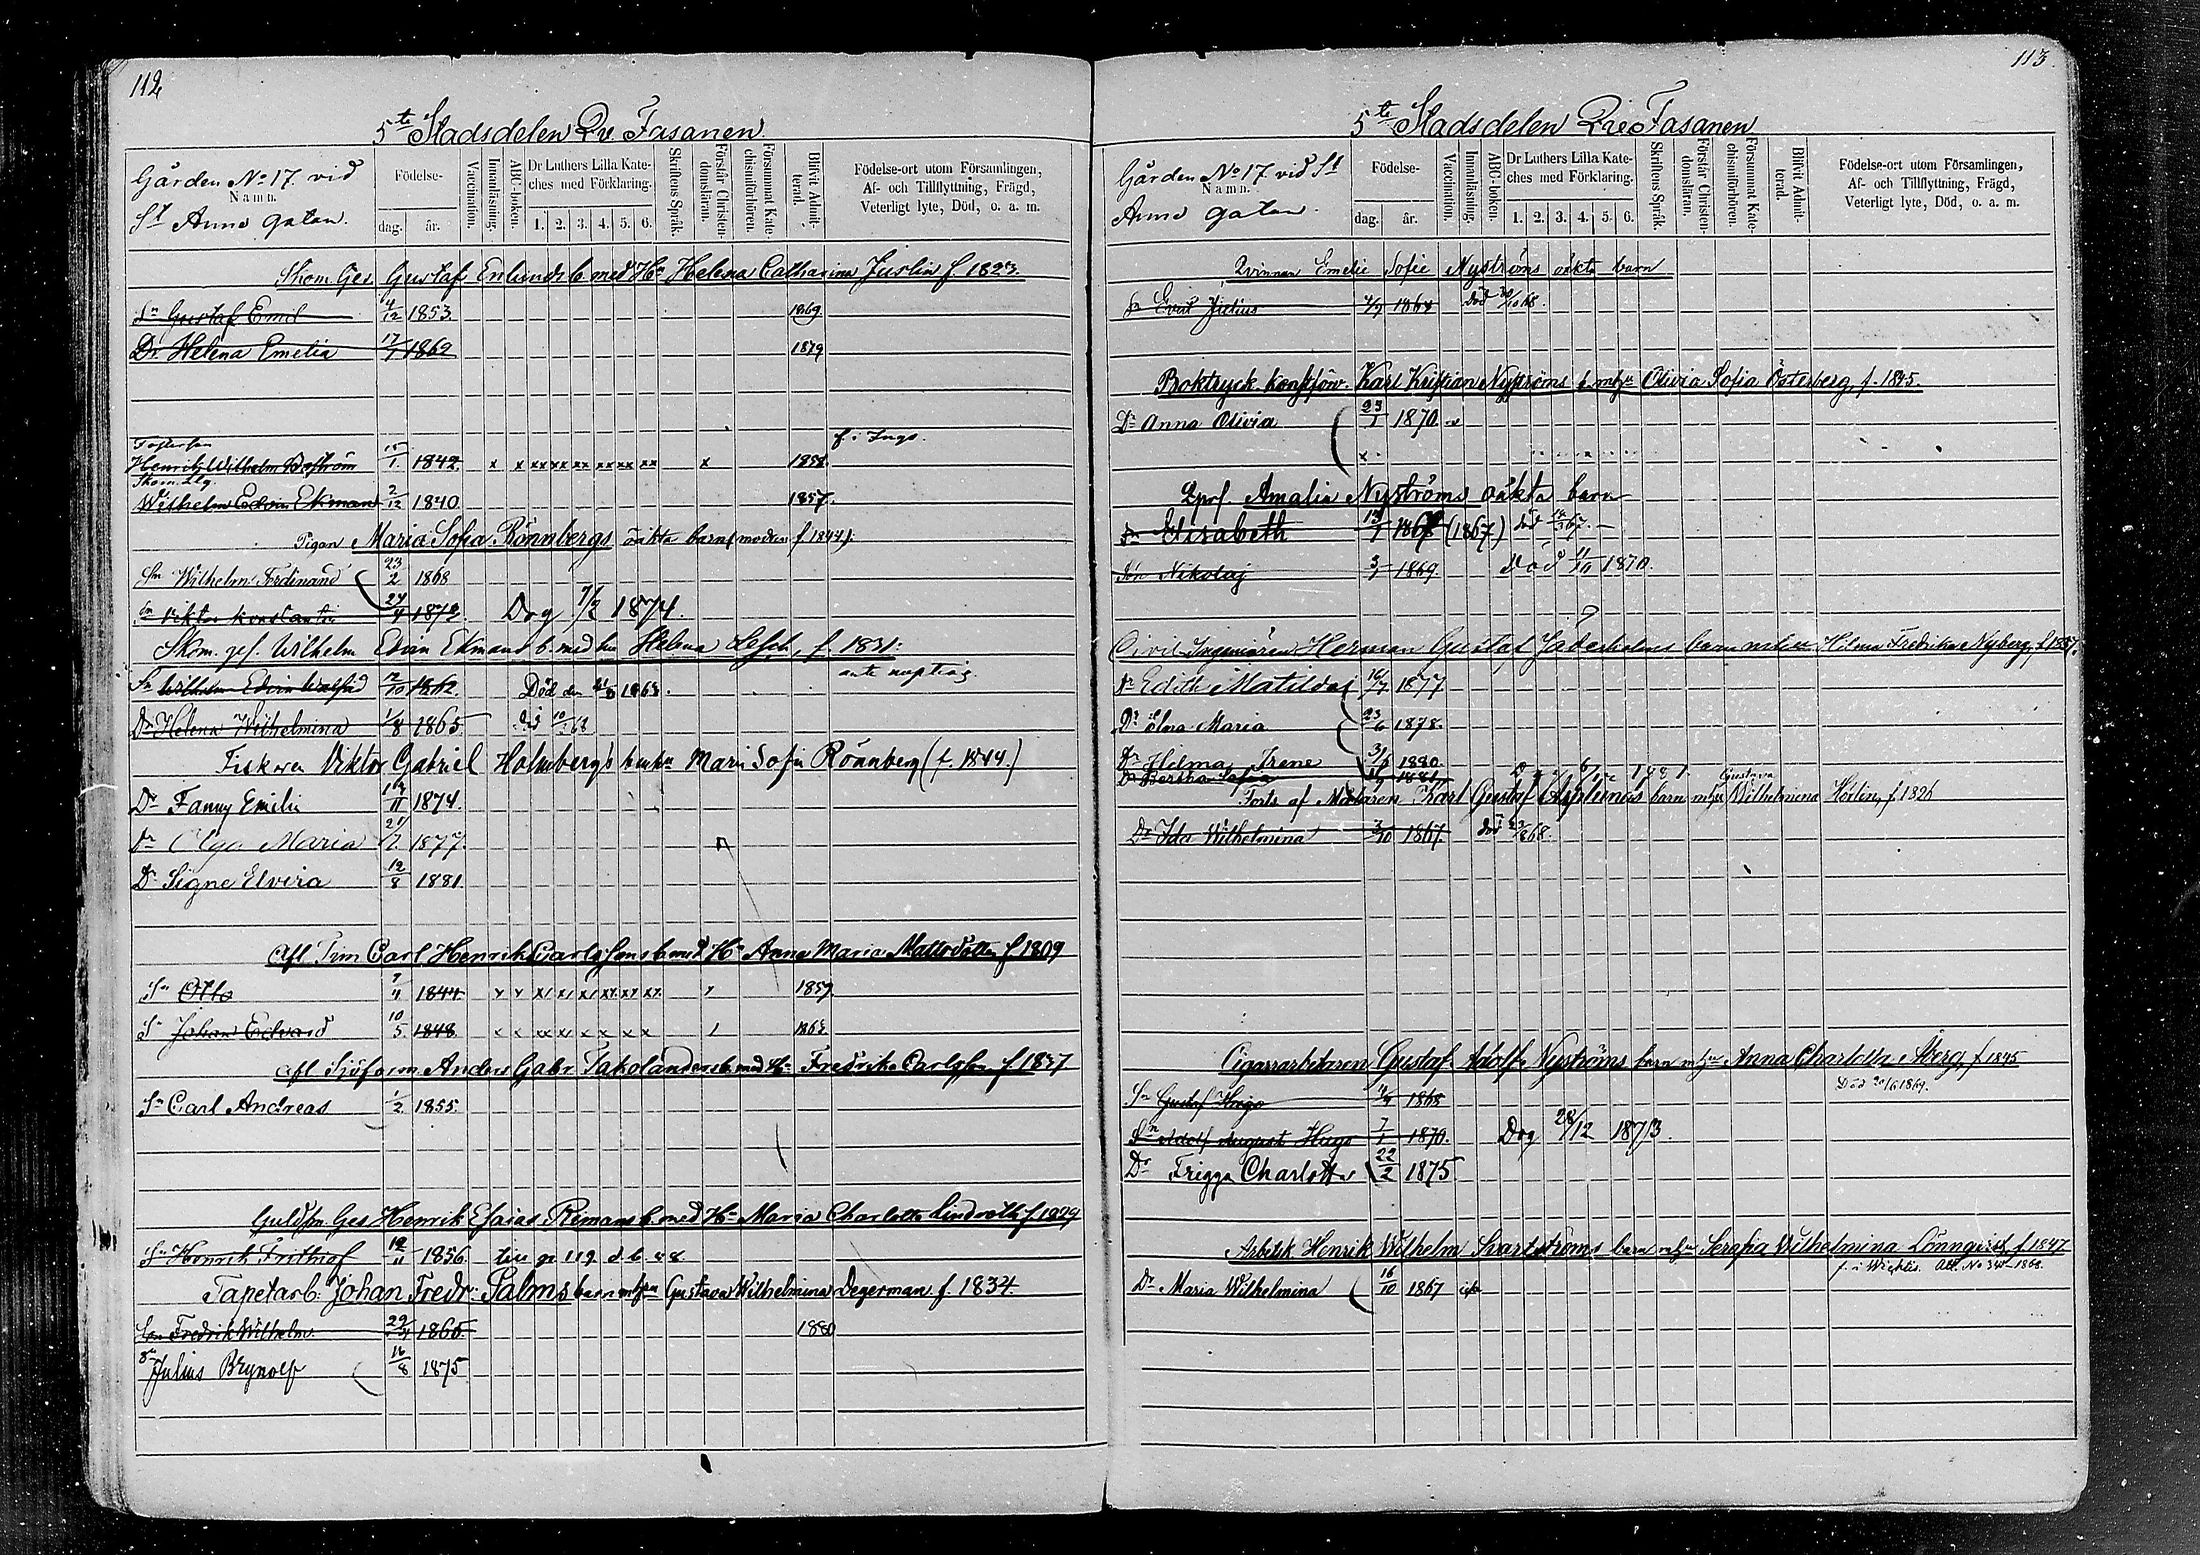 112
5te Stadsdelen Qv. Fasanen
Gården No 17. vid
St Anna gatan.
Namn.
Födelse-
dag. år.
Vaccination.
Innanläsning.
ABC-boken.
Dr Luthers Lilla Kate-
ches med Förklaring.
1. 2. 3. 4. 5. 6.
Skriftens Språk.
Förstår Christen-
domsläran.
Försummat Kate-
chismiförhören.
Blifvit Admit-
terad.
Födelse-ort utom Församlingen,
Af- och Tillflyttning, Frägd,
Veterligt lyte, Död, o. a. m.
Skom. Ges. Gustaf Enlunds b. med Hu Helena Catharina Juslin f. 1823.
Sn Gustaf Emil 4/12 1853. 1869
Dr. Helena Emelia 17/1 1862 1879
Fosterson f. i Ingo.
Henrik Wilhelm Boström 15/1 1842 x x xx xx xx xx xx xx x 1858.
Skom. Llg.
Wilhelm Edvin Ekman 2/12 1840 1857.
Pigan Maria Sofia Rönnbergs oäkta barn (modren f 1844):
Sn Wilhelm Ferdinand 23/2 1868
Sn Viktor Konstantin 24/4 1872 Dog 7/2 1874.
Skom. gef. Wilhelm Edvin Ekmans b. med hu Helena Lesch, f. 1831:
ante nuptias
Sn Wilhelm Edvin Walfrid 12/10 1862 Död den 21/8 1863.
Dr Helena Wilhelmina 1/8 1865 död 10/1 68
Fiskaren Viktor Gabriel Holmbergs b. m. hu Maria Sofia Rönnberg (f. 1844.)
Dr Fanny Emilia 17/11 1874.
Dr Olga Maria 21/7 1877.
Dr Signe Elvira 12/8 1881.
Afl. Tim Carl Henrik Carlssons b. med Hu Anna Maria Mattsdotter f 1809
Sn Otto 7/4 1844 1859.
Sn Johan Edvard 10/5 1848 1863.
Afl. Sjöform. Anders Gabr. Takolanders b. med Hu Fredrika Carlsson f 1837
Sn Carl Andreas 1/2 1855.
Guldsm. Ges Henrik Esaias Rimans b. med Hu Maria Charlotta Lindroth f 1829
Sn Henrik Frithiof 12/11 1856.
Tapetarb. Johan Fredr. Palms barn m. hu Gustava Wilhelmina Degerman f. 1834.
Son Fredrik Wilhelm. 29/4 1865 1880
Sn Julius Brynolf 16/8 1875
113.
5te Stadsdelen Qv. Fasanen
Gården No 17 vid St
Namn.
Anna gatan.
Födelse-
dag. år.
Vaccination.
Innanläsning.
ABC-boken.
Dr Luthers Lilla Kate-
ches med Förklaring.
1. 2. 3. 4. 5. 6.
Skriftens Språk.
Förstår Christen-
domsläran.
Försummat Kate-
chismiförhören.
Blifvit Admit-
terad.
Födelse-ort utom Församlingen,
Af- och Tillflyttning, Frägd,
Veterligt lyte, Död, o. a. m.
Qvinnan Emelie Sofie Nyströms oäkta barn
Sn Evert Julius 4/7 1864 död 30/10 68.
Boktryck. konstförv. Karl Kristian Nyströms b. m. hu Olivia Sofia Österberg, f. 1845.
Dr Anna Olivia 23/1 1870.
Amalia Nyströms oäkta barn
Elisabeth 1867 (1867) död
Sn Nikolaj 3/1 1869. Död 11/10 1870.
Civil-Ingeniören Herman Gustaf Jäderholms barn m. hu Hilma Fredrika Nyberg, f. 1857.
Dr Edith Matilda 16/7 1877
Dr Elna Maria 23/6 1878.
Dr Hilma Irene 1880
Dr Bertha Sofia 1881
Forts af Målaren Karl Gustaf Asplunds barn m hu Gustava Wilhelmina Hörlin, f 1826
Dr Ida Wilhelmina 3/10 1861. död 23/8 68.
Cigarrarbetaren Gustaf Adolf Nyströms barn m hu Anna Charlotta Åberg, f 1845
Sn Gustaf Hugo 1868 Död 20/6 1869.
Sn Adolf August Hugo 7/1 1870. Dog 28/12 1873.
Dr Frigga Charlotta 22/2 1875
Arbetsk. Henrik Wilhelm Svartströms barn m hu Serafia Wilhelmina Lönnqvist, f. 1847
f. i Wichtis. Att. No 345 1868.
Dr Maria Wilhelmina 16/10 1867